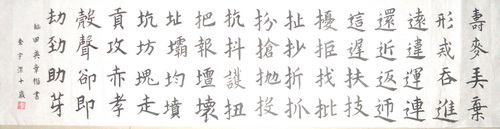 壽麥弄棄
形戒吞進
遠違運連
還近返迎
這遲扶技
擾拒找批
扯折抄抓
扮搶拋投
抗抖護扭
把報壇壞
址壩均墳
坑坊塊走
貢攻赤孝
殼聲卻即
劫勁助芽
田英章楷書